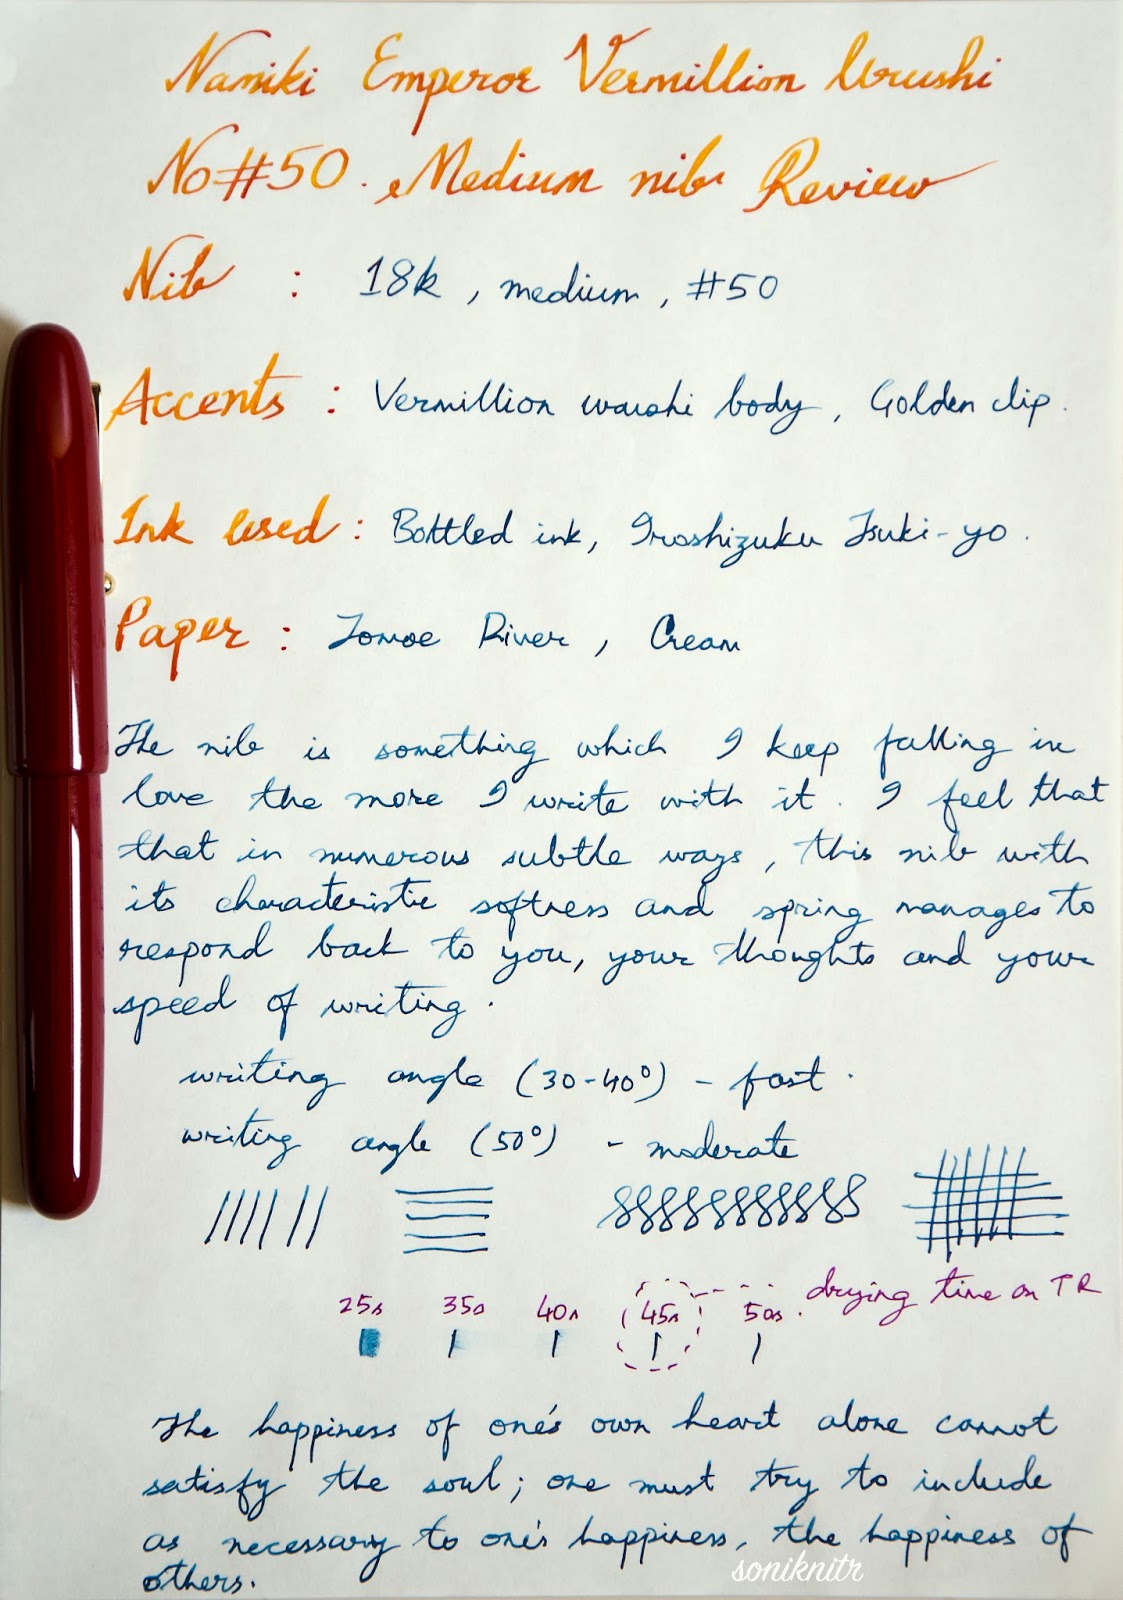 Namiki Emperor Vermillion Urushi
No#50. Medium nib Review
Nib : 18k, medium, #50
Accents : Vermillion urushi body, Golden clip.
Ink used : Bottled ink, Iroshizuku Tsuki-yo.
Paper : Tomoe River, Cream
The nib is something which I keep falling in
love the more I write with it. I feel that
that in numerous subtle ways, this nib with
its characteristic softness and spring manages to
respond back to you, your thoughts and your
speed of writing.
writing angle (30-40°) - fast.
writing angle (50°) - moderate
drying time on TR
25s 35s 40s 45s 50s.
The happiness of one's own heart alone cannot
satisfy the soul; one must try to include
as necessary to one's happiness, the happiness of
others.
soniknitr